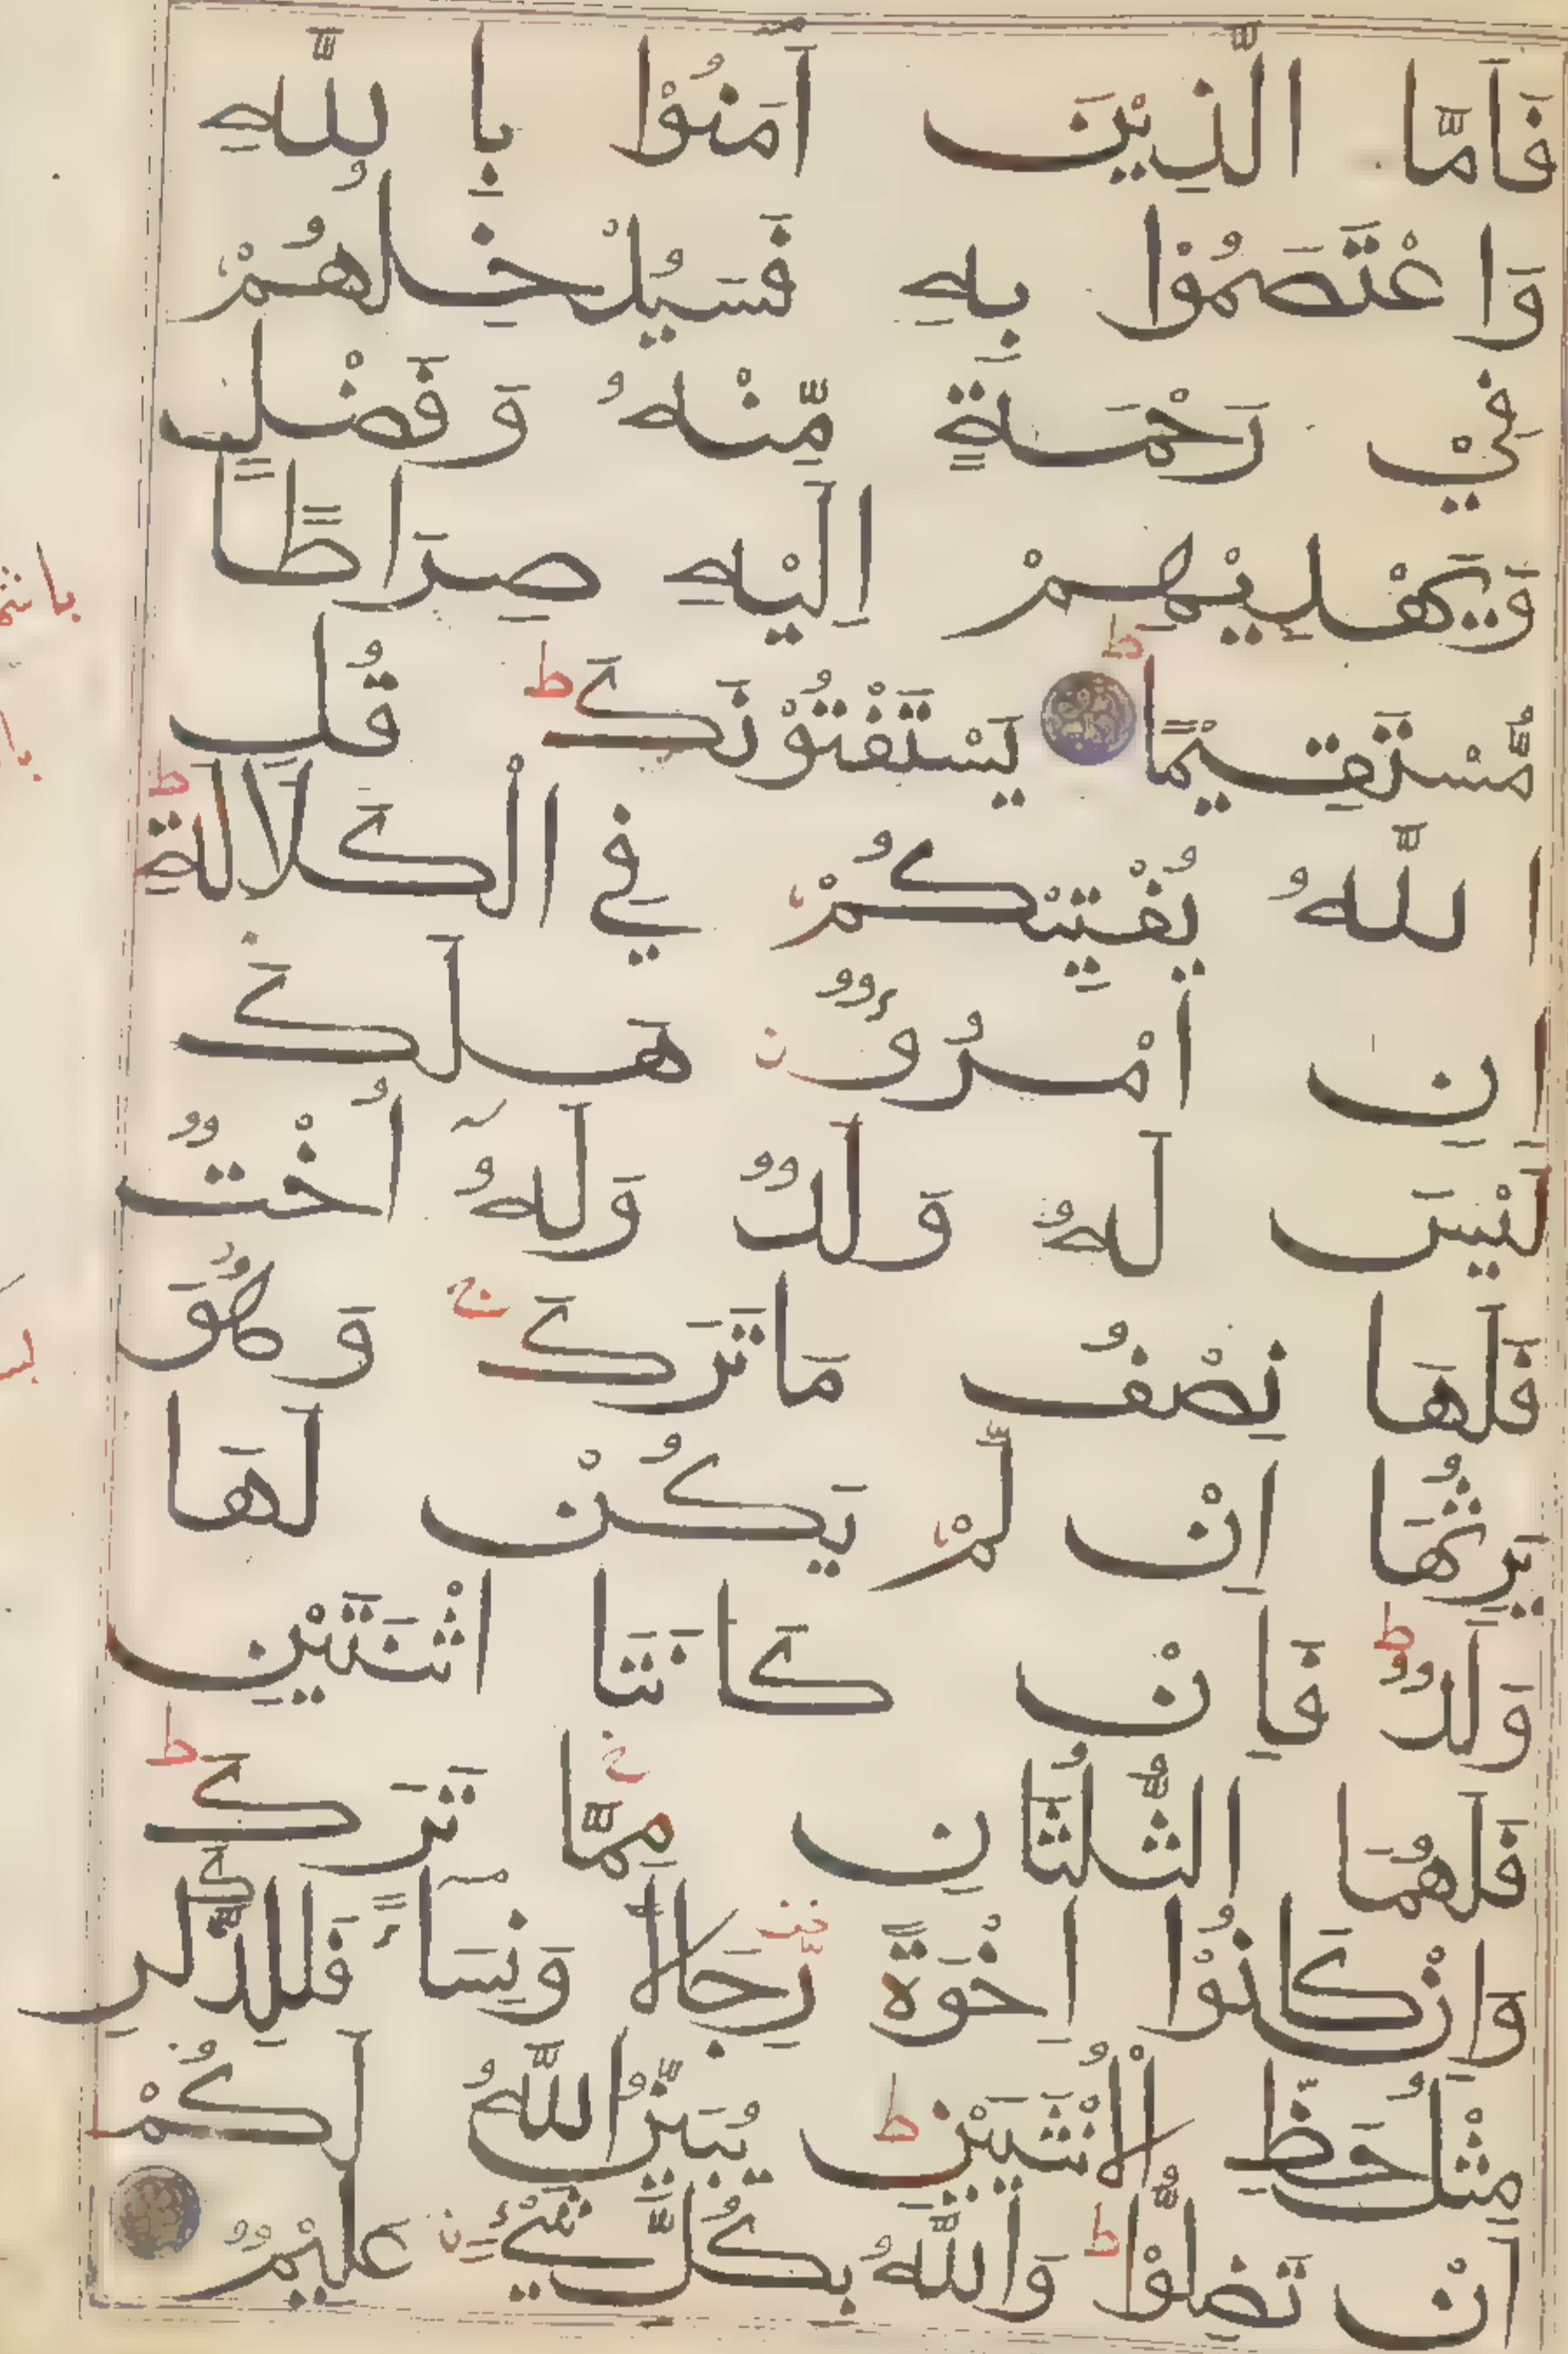 فَاَمَّا الَّذِيْنَ اٰمَنُوْا بِا للّٰهِ
وَا عْتَصَمُوْا بِهٖ فَسَيُدْخِلُهُمْ
فِيْ رَحْمَةٍ مِّنْهُ وَ فَضْلٍ
وَّيَهْدِيْهِمْ اِلَيْهِ صِرَاطًا
مُّسْتَقِيْمًا ط يَسْتَفْتُوْنَكَ ط قُلِ
ا للّٰهُ يُفْتِيْكُمْ فِي الْكَلَالَةِ ط
اِنِ امْرُؤٌ ن هَلَكَ
لَيْسَ لَهٗ وَلَدٌ وَّلَهٗٓ اُخْتٌ
فَلَهَا نِصْفُ مَا تَرَكَ ج وَ هُوَ
يَرِثُهَا اِنْ لَّمْ يَكُنْ لَّهَا
وَلَدٌ ط فَاِ نْ كَا نَتَا اثْنَتَيْنِ
فَلَهُمَا الثُّلُثَانِ مِمَّا تَرَكَ ط
وَاِنْ كَانُوْا اِخْوَةً رِّجَالًا وَّنِسَآءً فَلِلذَّكَرِ
مِثْلُ حَظِّ الْاُنْثَيَيْنِ ط يُبَيِّنُ اللّٰهُ لَكُمْ
اَنْ تَضِلُّوْا ط وَاللّٰهُ بِكُلِّ شَيْءٍ ن عَلِيْمٌ